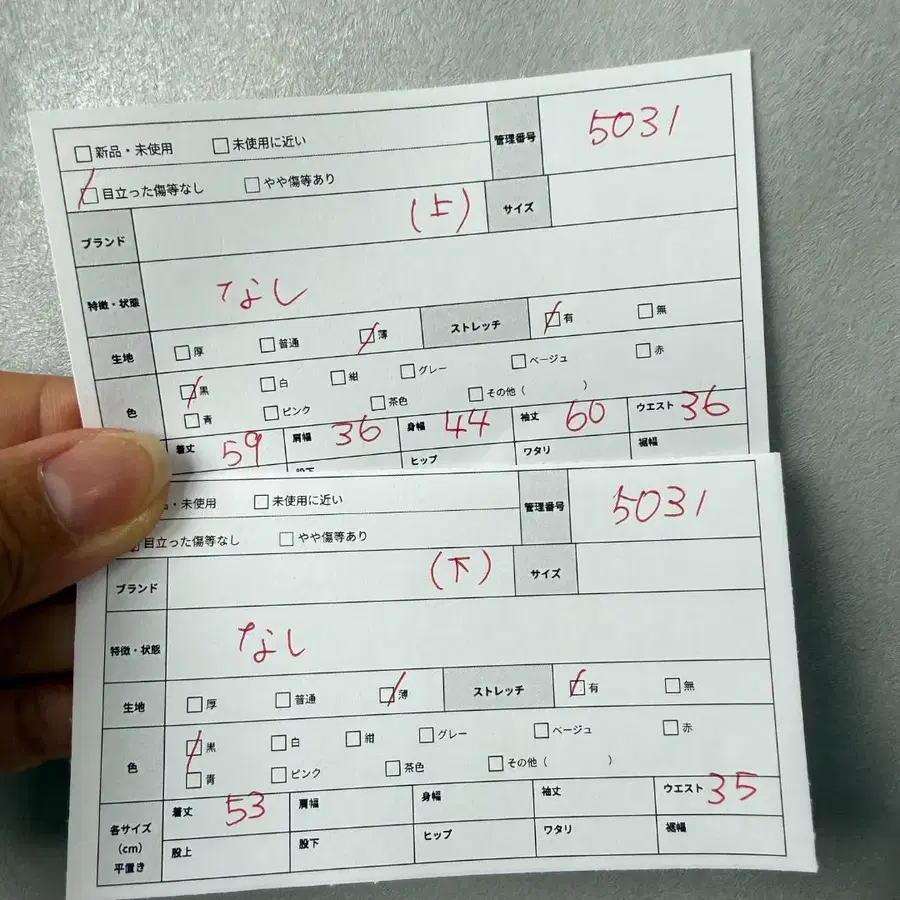 □新品・未使用 □未使用に近い 管理番号 5031
□目立った傷等なし □やや傷等あり
ブランド (上) サイズ
特徴・状態 なし
生地 □厚 □普通 □薄 ストレッチ □有 □無
色 □黒 □白 □紺 □グレー □ベージュ □赤
□青 □ピンク □茶色 □その他( )
着丈 59 肩幅 36 身幅 44 袖丈 60 ウエスト 36
股下 ヒップ ワタリ 裾幅
・未使用 □未使用に近い 管理番号 5031
目立った傷等なし □やや傷等あり
ブランド (下) サイズ
特徴・状態 なし
生地 □厚 □普通 □薄 ストレッチ □有 □無
色 □黒 □白 □紺 □グレー □ベージュ □赤
□青 □ピンク □茶色 □その他( )
各サイズ(cm)平置き 着丈 53 肩幅 身幅 袖丈 ウエスト 35
股上 股下 ヒップ ワタリ 裾幅